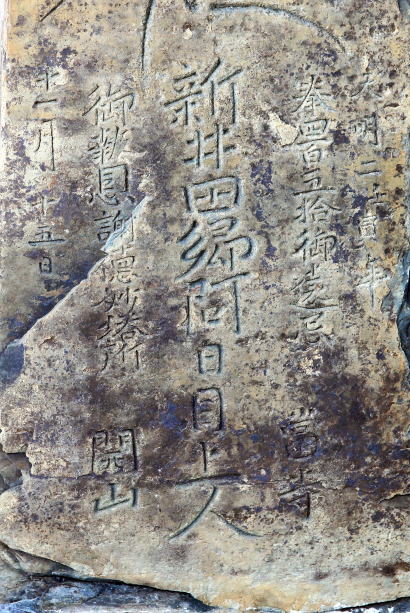 天明二壬寅年
奉四百五拾御遠忌 當寺
新井田郷阿日目上人
御報恩謝徳妙塔所 開山
十一月十五日